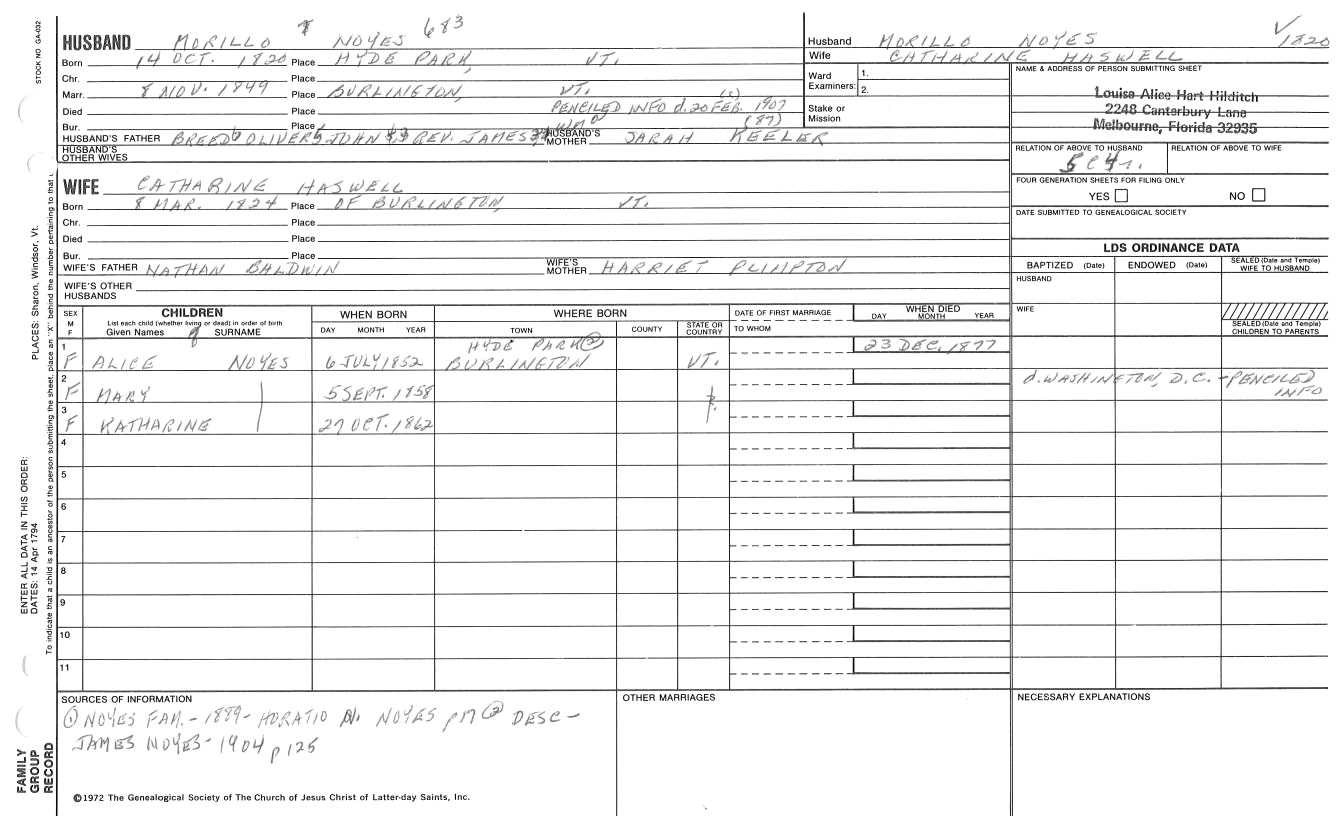 STOCK NO GA-032
HUSBAND MORILLO 8 NOYES 683
Born 14 OCT. 1820 Place HYDE PARK, VT.
Chr. Place
Marr. 8 NOV. 1849 Place BURLINGTON, VT.
Died Place PENCILED INFO d. 20 FEB. 1907
Bur. Place (87)
HUSBAND'S FATHER BREED OLIVER JOHN REV. JAMES HUSBAND'S MOTHER SARAH KEELER
HUSBAND'S OTHER WIVES
WIFE CATHARINE HASWELL
Born 8 MAR. 1824 Place OF BURLINGTON, VT.
Chr. Place
Died Place
Bur. Place
WIFE'S FATHER NATHAN BALDWIN WIFE'S MOTHER HARRIET PLIMPTON
WIFE'S OTHER HUSBANDS
Husband MORILLO NOYES 1820
Wife CATHARINE HASWELL
Ward Examiners: 1.
2.
Stake or Mission
NAME & ADDRESS OF PERSON SUBMITTING SHEET
Louise Alice Hart Hilditch
2248 Canterbury Lane
Melbourne, Florida 32935
RELATION OF ABOVE TO HUSBAND RELATION OF ABOVE TO WIFE
5C4r.
FOUR GENERATION SHEETS FOR FILING ONLY
YES NO
DATE SUBMITTED TO GENEALOGICAL SOCIETY
LDS ORDINANCE DATA
BAPTIZED (Date) ENDOWED (Date) SEALED (Date and Temple) WIFE TO HUSBAND
HUSBAND
WIFE
SEALED (Date and Temple) CHILDREN TO PARENTS
SEX M F CHILDREN WHEN BORN WHERE BORN DATE OF FIRST MARRIAGE WHEN DIED
List each child (whether living or dead) in order of birth
Given Names SURNAME DAY MONTH YEAR TOWN COUNTY STATE OR COUNTRY TO WHOM DAY MONTH YEAR
1 HYDE PARK② 23 DEC. 1877
F ALICE NOYES 6 JULY 1852 BURLINGTON VT.
2 d. WASHINGTON, D.C. - PENCILED INFO
F MARY 5 SEPT. 1858
3
F KATHARINE 27 OCT. 1862
4
5
6
7
8
9
10
11
SOURCES OF INFORMATION OTHER MARRIAGES NECESSARY EXPLANATIONS
① NOYES FAM. - 1889 - HORATIO N. NOYES p 17 ② DESC -
JAMES NOYES - 1904 p 125
©1972 The Genealogical Society of The Church of Jesus Christ of Latter-day Saints, Inc.
FAMILY GROUP RECORD
ENTER ALL DATA IN THIS ORDER:
DATES: 14 Apr 1794
PLACES: Sharon, Windsor, Vt.
To indicate that a child is an ancestor of the person submitting the sheet, place an "X" behind the number pertaining to that